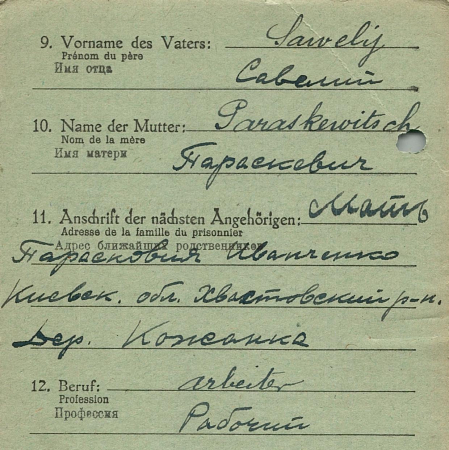 9. Vorname des Vaters: Sawelij
Prénom du père
Имя отца Савелий
10. Name der Mutter: Paraskewitsch
Nom de la mère
Имя матери Параскевич
11. Anschrift der nächsten Angehörigen: Мать
Adresse de la famille du prisonnier
Адрес ближайших родственников
Парасковия Иванченко
Киевск. обл. Хвастовский р-н.
Дер. Кожанка
12. Beruf: arbeiter
Profession
Профессия Рабочий